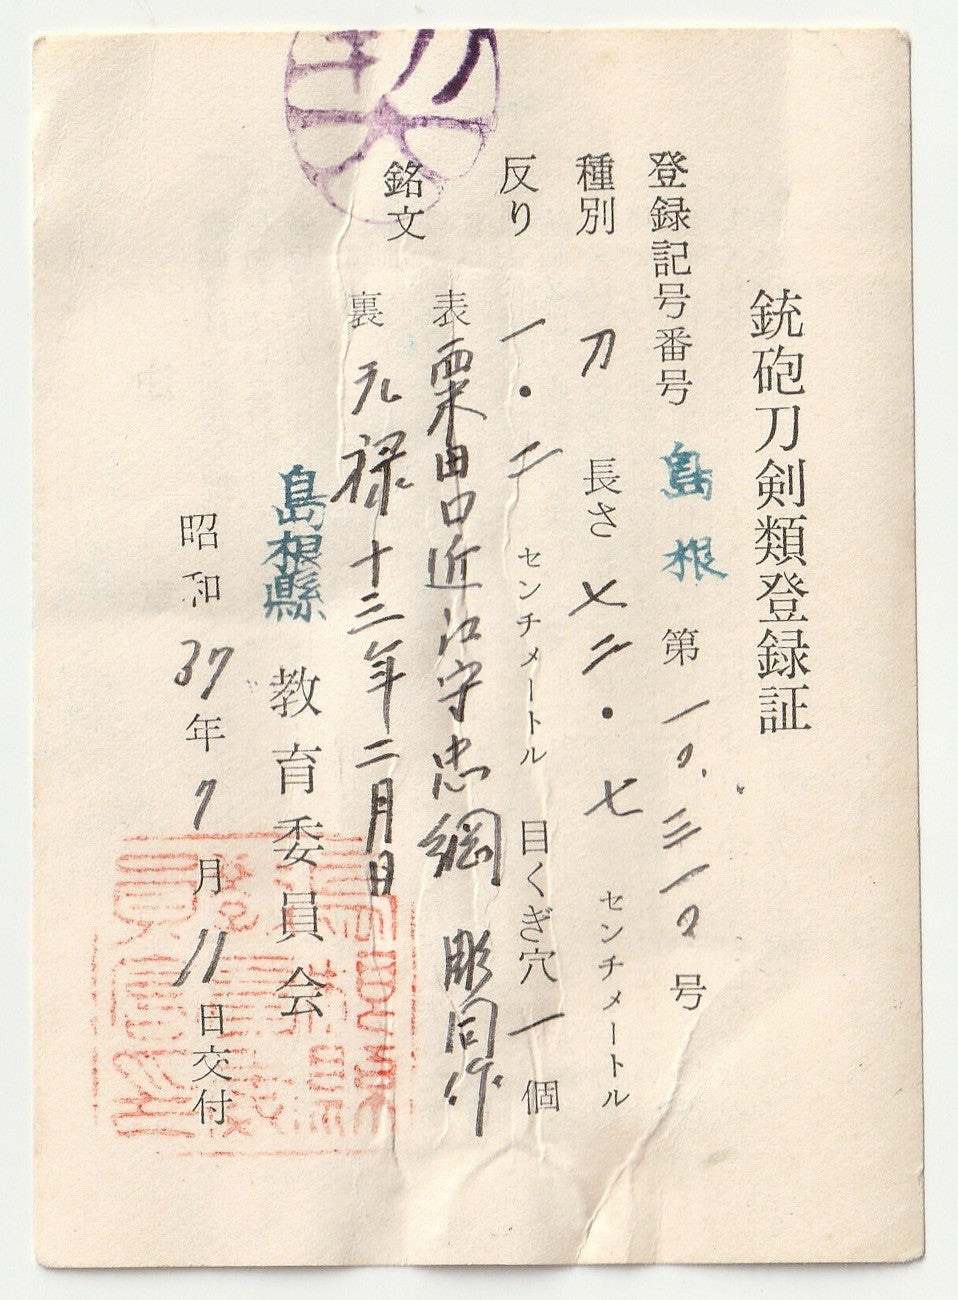 銃砲刀剣類登録証
登録記号番号 島根 第一〇,三一〇号
種別 刀 長さ 七二・七 センチメートル
反り 一・二 センチメートル 目くぎ穴 一 個
銘文
表 粟田口近江守忠綱 彫同作
裏 元禄十三年二月日
島根縣 教育委員会
昭和37年7月11日交付